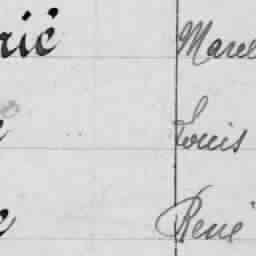 rić Marc
Louis
René